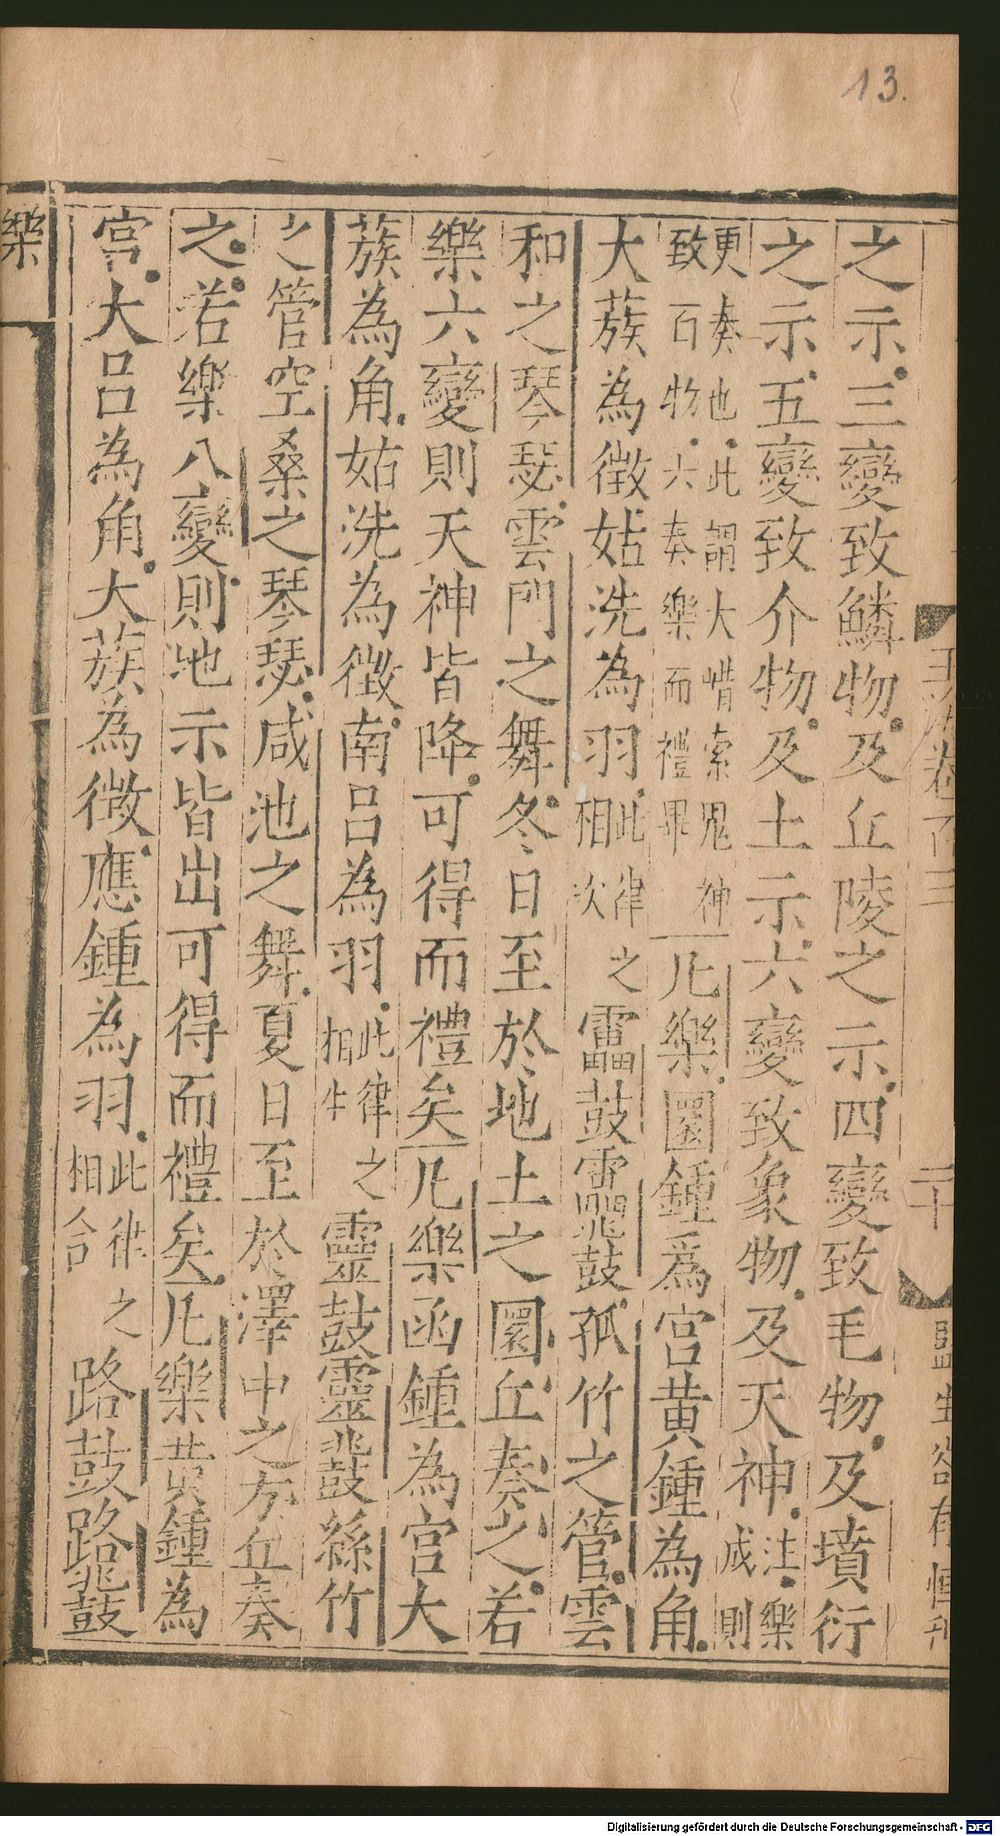 13.
玉海卷百三
二十
監生
有恒刊
之示三變致鱗物及丘陵之示四變致毛物及墳衍
之示五變致介物及土示六變致象物及天神注樂成則
更奏也此謂大𮛫索鬼神致百物六奏樂而禮畢凡樂圜鍾爲宮黄鍾為角
大蔟為徵姑洗為羽此律之相次靁鼓靁鼗孤竹之管雲
和之琴瑟雲門之舞冬日至於地土之圜丘奏之若
樂六變則天神皆降可得而禮矣凡樂函鍾為宮大
蔟為角姑洗為徵南吕為羽此律之相生靈鼓靈鼗絲竹
之管空桑之琴瑟咸池之舞夏日至於澤中之方丘奏
之若樂八變則地示皆出可得而禮矣凡樂黄鍾為
宮大吕為角大蔟為徵應鍾為羽此律之相合路鼓路鼗
樂
Digitalisierung gefördert durch die Deutsche Forschungsgemeinschaft - DFG